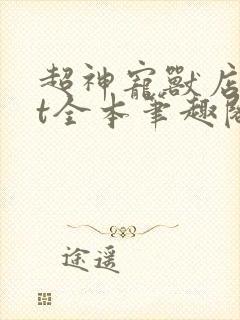 超神寵獸店
t全本筆趣閣
途遥